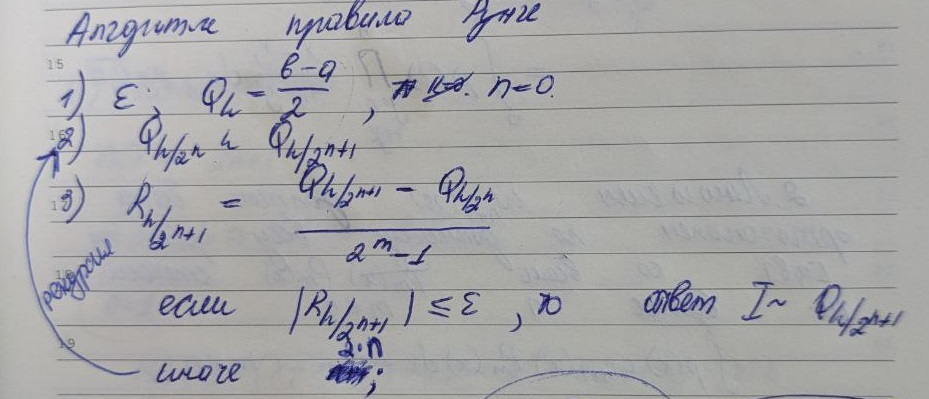 Алгоритм правило Рунге
15
1) ε; Q_h = (b-a)/2, n=0.
16
2) Q_{h/2^n} и Q_{h/2^{n+1}}
3) R_{h/2^{n+1}} = (Q_{h/2^{n+1}} - Q_{h/2^n})/(2^m-1)
рекурсия
если |R_{h/2^{n+1}}| ≤ ε, то ответ I ~ Q_{h/2^{n+1}}
19
иначе 2·n;